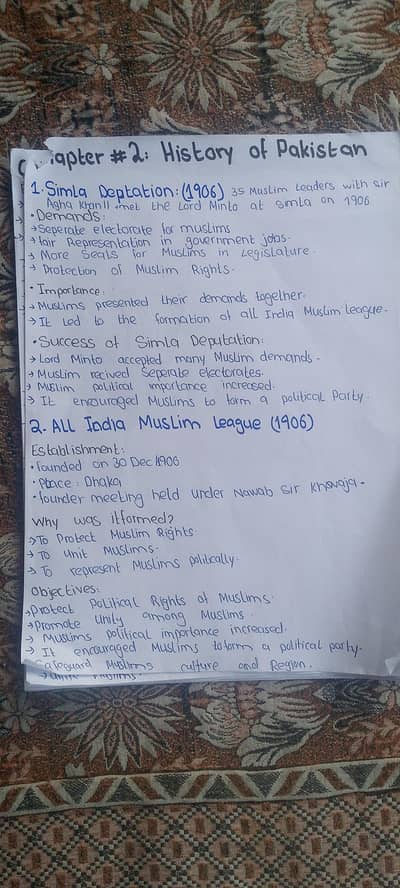 Chapter #2: History of Pakistan
1. Simla Deptation: (1906) 35 Muslim Leaders with Sir
Agha Khan II met the Lord Minto at Simla on 1906
• Demands:
→ Seperate electorate for muslims
→ fair Representation in government jobs.
→ More Seats for Muslims in Legislature.
→ Protection of Muslim Rights.
• Importance:
→ Muslims presented their demands together.
→ It Led to the formation of all India Muslim League.
• Success of Simla Deputation:
→ Lord Minto accepted many Muslim demands.
→ Muslim recived Seperate electorates.
→ Muslim political importance increased.
→ It encouraged Muslims to form a political Party.
2. All India Muslim League (1906)
Establishment:
• founded on 30 Dec 1906
• Place: Dhaka
• founder meeting held under Nawab Sir Khawaja-
Why was itformed?
→ To Protect Muslim Rights
→ To Unit Muslims.
→ To represent Muslims politically.
Objectives:
→ Protect Political Rights of Muslims.
→ Promote unity among Muslims.
→ Muslims political importance increased.
→ It encouraged Muslims to form a political party.
Safeguard Muslims culture and Region.